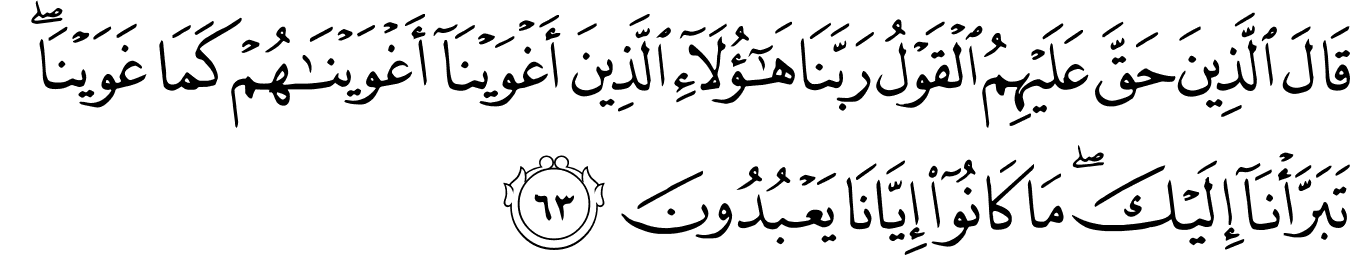 قَالَ ٱلَّذِينَ حَقَّ عَلَيْهِمُ ٱلْقَوْلُ رَبَّنَا هَـٰٓؤُلَآءِ ٱلَّذِينَ أَغْوَيْنَآ أَغْوَيْنَـٰهُمْ كَمَا غَوَيْنَا ۖ
تَبَرَّأْنَآ إِلَيْكَ ۖ مَا كَانُوٓا۟ إِيَّانَا يَعْبُدُونَ ٦٣